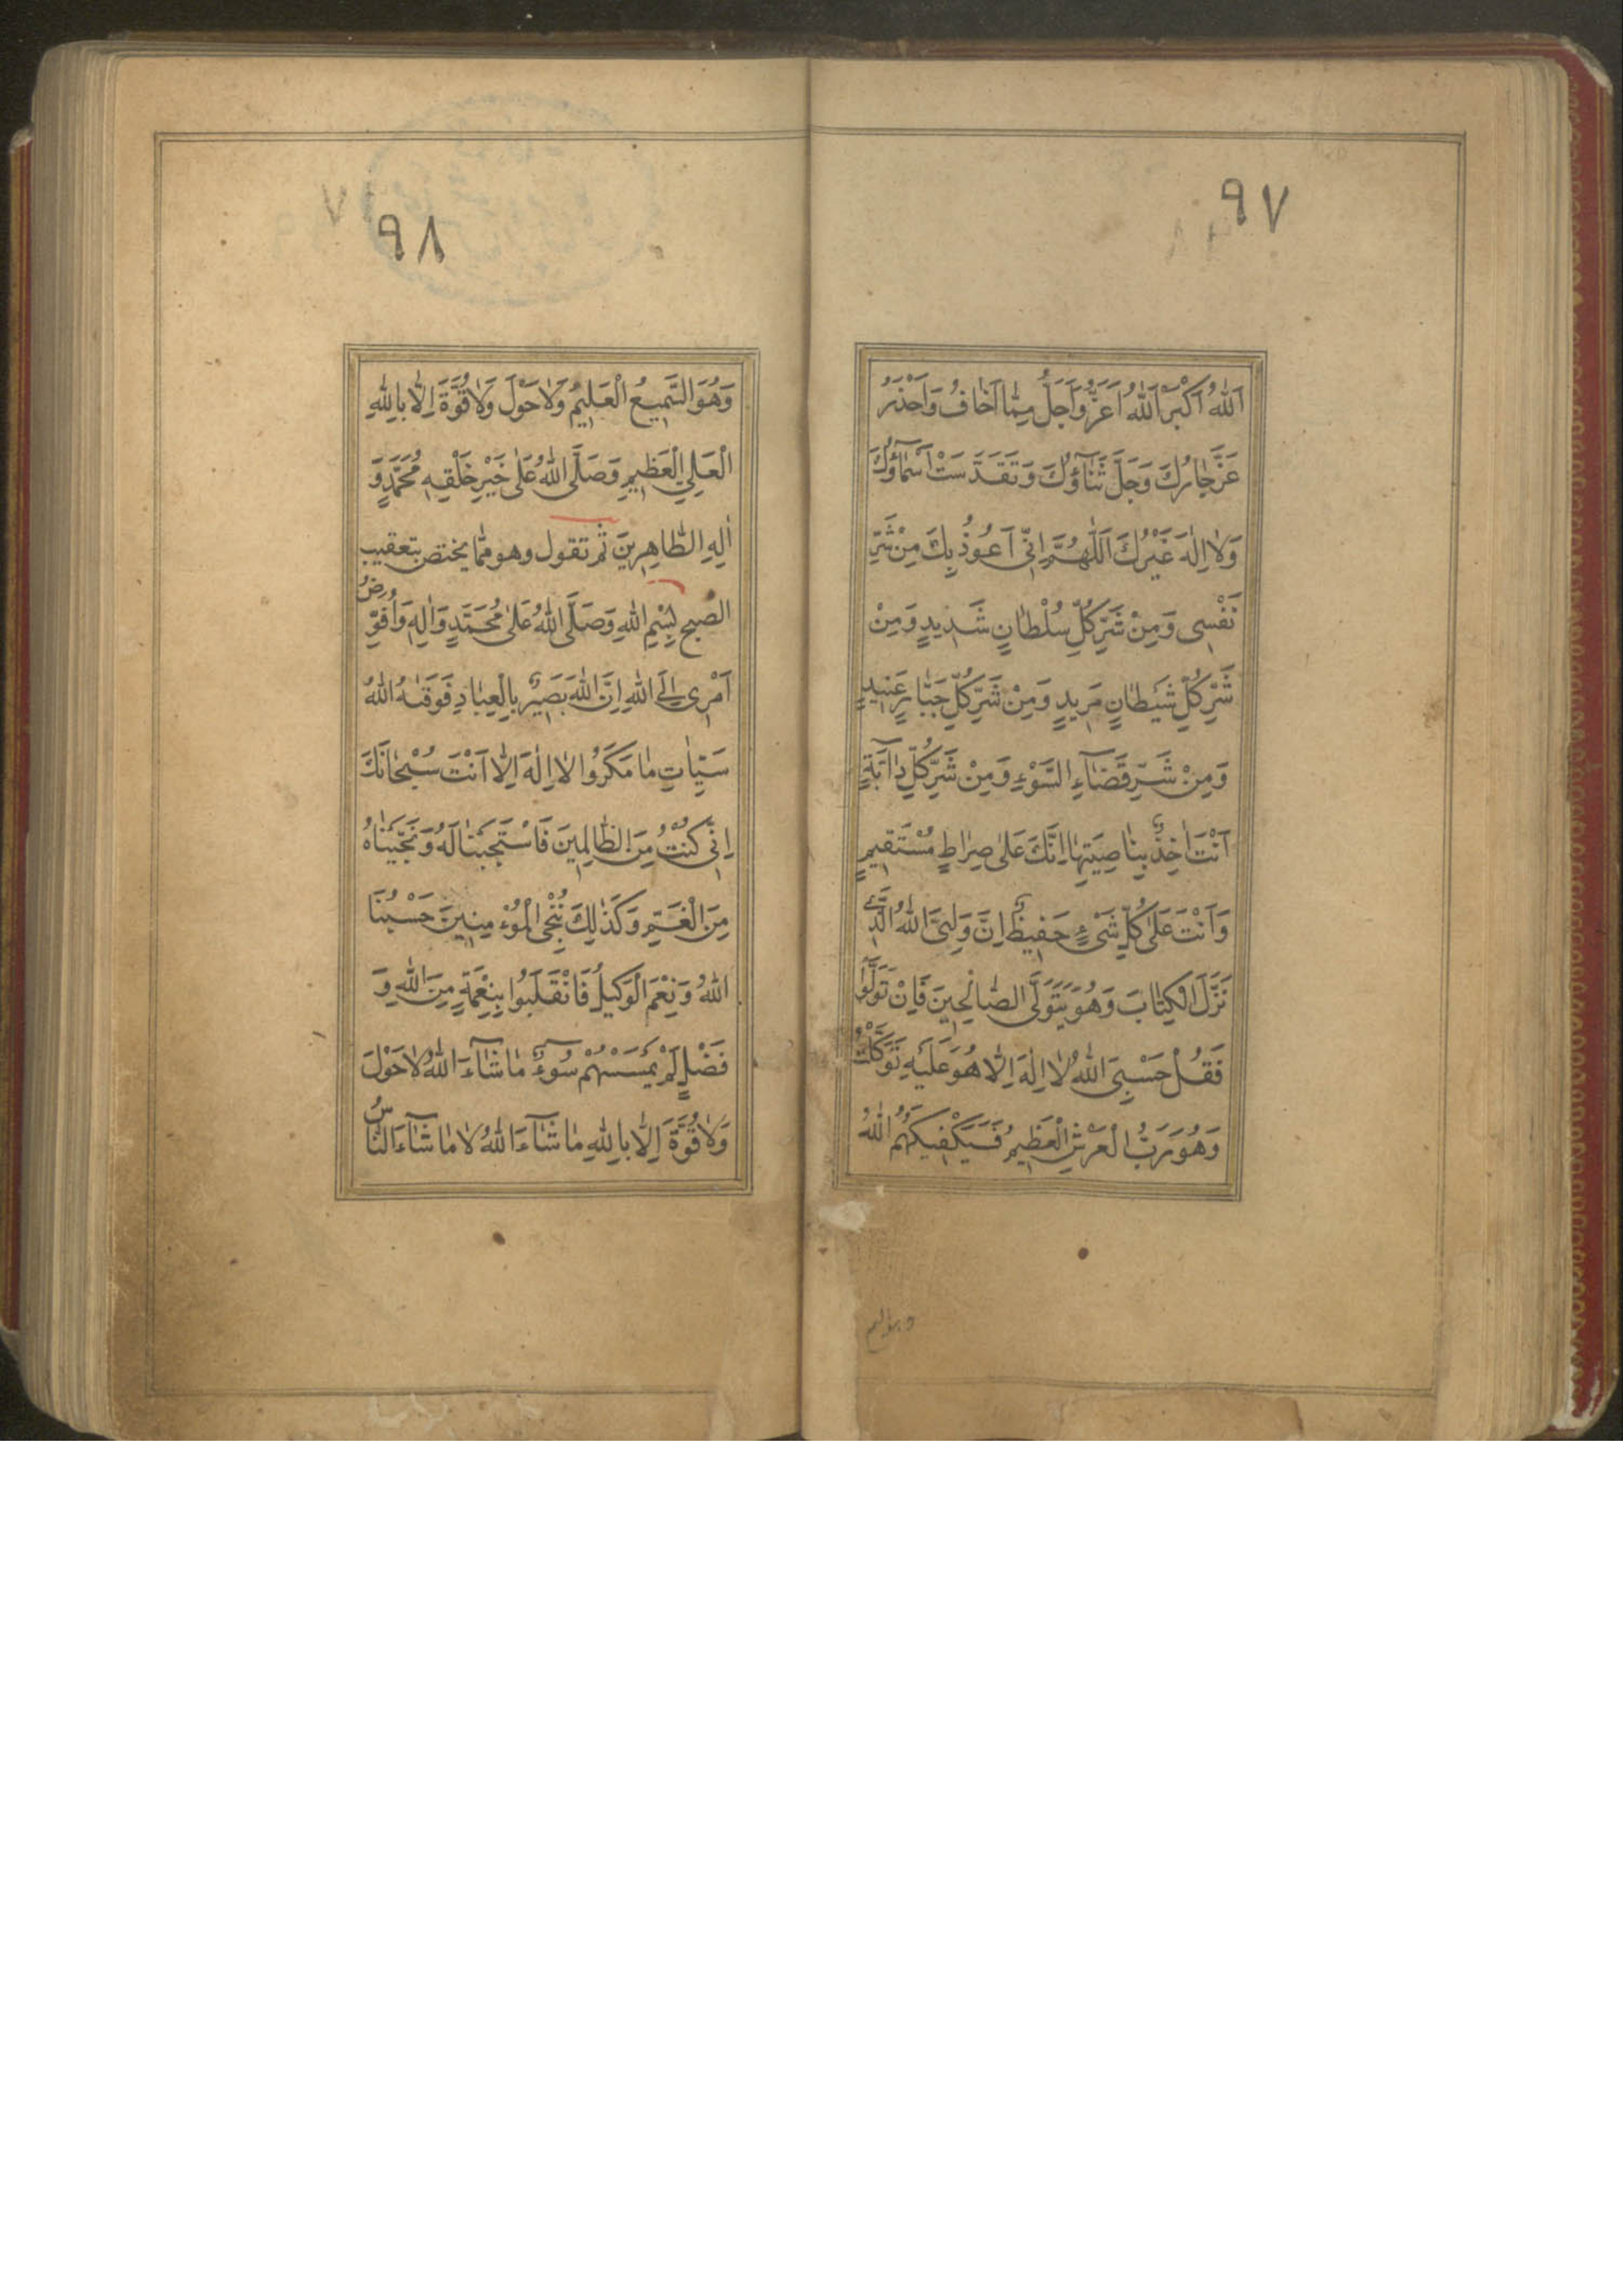 ٩٧
اَللّٰهُ اَكْبَرُ اَللّٰهُ اَعَزُّ وَاَجَلُّ مِمّٰا اَخٰافُ وَاَحْذَرُ
عَزَّ جٰارُكَ وَجَلَّ ثَنٰآؤُكَ وَتَقَدَّسَتْ اَسْمٰآؤُكَ
وَلٰا اِلٰهَ غَيْرُكَ اَللّٰهُمَّ اِنّٖى اَعُوذُ بِكَ مِنْ شَرِّ
نَفْسٖى وَمِنْ شَرِّ كُلِّ سُلْطٰانٍ شَدٖيدٍ وَمِنْ
شَرِّ كُلِّ شَيْطٰانٍ مَرٖيدٍ وَمِنْ شَرِّ كُلِّ جَبّٰارٍ عَنٖيدٍ
وَمِنْ شَرِّ قَضٰآءِ السَّوْءِ وَمِنْ شَرِّ كُلِّ دٰآبَّةٍ
اَنْتَ اٰخِذٌ بِنٰاصِيَتِهٰا اِنَّكَ عَلىٰ صِرٰاطٍ مُسْتَقٖيمٍ
وَاَنْتَ عَلىٰ كُلِّ شَىْءٍ حَفٖيظٌ اِنَّ وَلِيِّىَ اللّٰهُ الَّذٖى
نَزَّلَ الْكِتٰابَ وَهُوَ يَتَوَلَّى الصّٰالِحٖينَ فَاِنْ تَوَلَّوْا
فَقُلْ حَسْبِىَ اللّٰهُ لٰا اِلٰهَ اِلّٰا هُوَ عَلَيْهِ تَوَكَّلْتُ
وَهُوَ رَبُّ الْعَرْشِ الْعَظٖيمِ فَسَيَكْفٖيكَهُمُ اللّٰهُ
٩٨
وَهُوَ السَّمٖيعُ الْعَلٖيمُ وَلٰا حَوْلَ وَلٰا قُوَّةَ اِلّٰا بِاللّٰهِ
الْعَلِيِّ الْعَظٖيمِ وَصَلَّى اللّٰهُ عَلىٰ خَيْرِ خَلْقِهٖ مُحَمَّدٍ وَ
اٰلِهِ الطّٰاهِرٖينَ ثم تقول وهو ممّا يختص بتعقيب
الصبح بِسْمِ اللّٰهِ وَصَلَّى اللّٰهُ عَلىٰ مُحَمَّدٍ وَاٰلِهٖ وَاُفَوِّضُ
اَمْرٖى اِلَى اللّٰهِ اِنَّ اللّٰهَ بَصٖيرٌ بِالْعِبٰادِ فَوَقٰىهُ اللّٰهُ
سَيِّئٰاتِ مٰا مَكَرُوا لٰا اِلٰهَ اِلّٰا اَنْتَ سُبْحٰانَكَ
اِنّٖى كُنْتُ مِنَ الظّٰالِمٖينَ فَاسْتَجَبْنٰا لَهُ وَنَجَّيْنٰاهُ
مِنَ الْغَمِّ وَكَذٰلِكَ نُنْجِى الْمُؤْمِنٖينَ حَسْبُنَا
اللّٰهُ وَنِعْمَ الْوَكٖيلُ فَانْقَلَبُوا بِنِعْمَةٍ مِنَ اللّٰهِ وَ
فَضْلٍ لَمْ يَمْسَسْهُمْ سُوٓءٌ مٰا شٰآءَ اللّٰهُ لٰا حَوْلَ
وَلٰا قُوَّةَ اِلّٰا بِاللّٰهِ مٰا شٰآءَ اللّٰهُ لٰا مٰا شٰآءَ النّٰاسُ